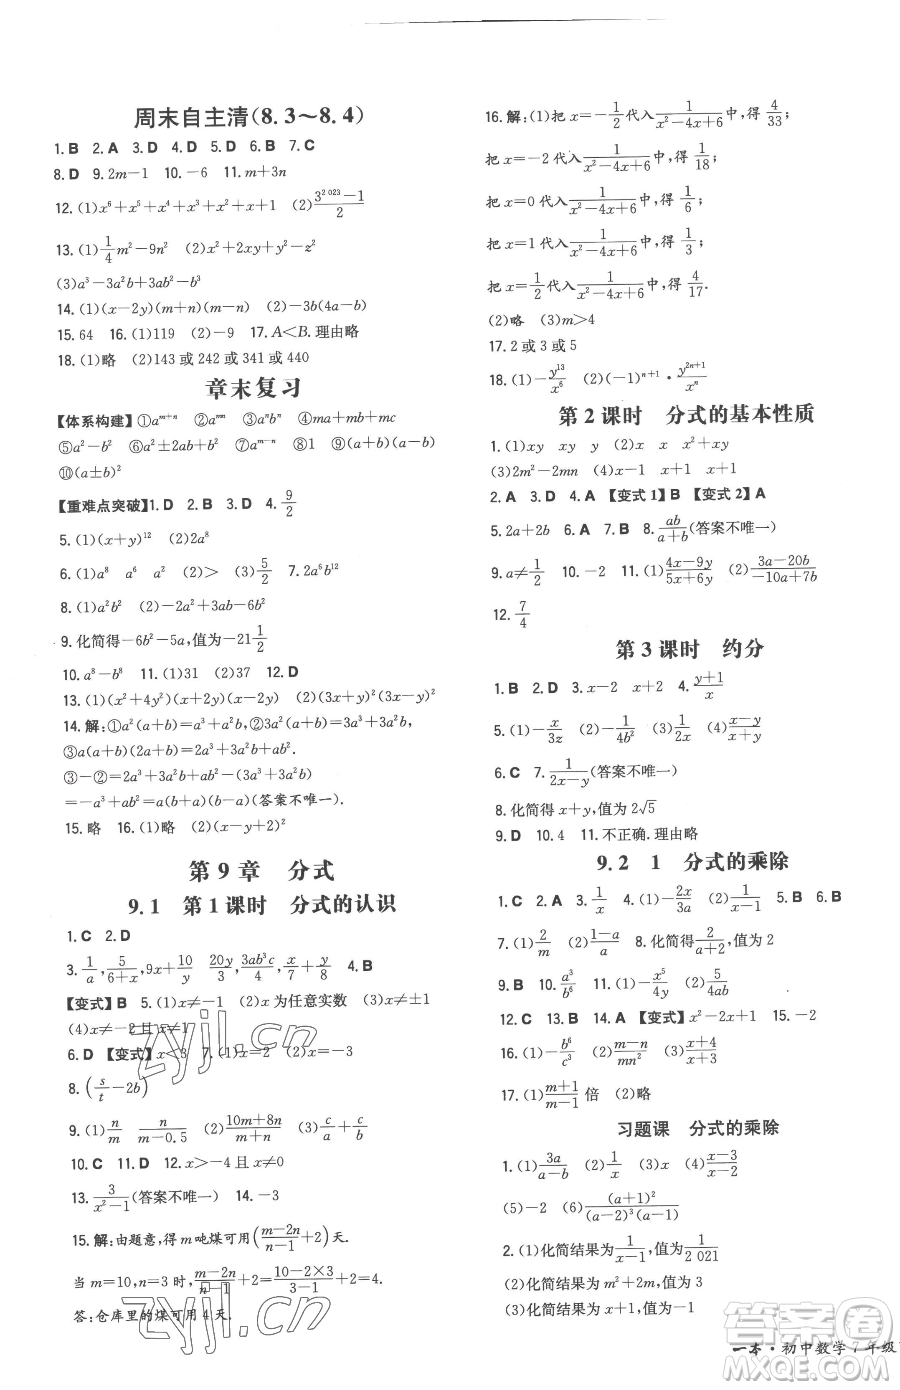 周末自主清(8.3～8.4)
1.B 2.A 3.D 4.D 5.D 6.B 7.C
8.D 9.2m－1 10.－6 11.m＋3n
12.(1)x⁶＋x⁵＋x⁴＋x³＋x²＋x＋1 (2)(3²⁰²³－1)/2
13.(1)1/4 m²－9n² (2)x²＋2xy＋y²－z²
(3)a³－3a²b＋3ab²－b³
14.(1)(x－2y)(m＋n)(m－n) (2)－3b(4a－b)
15.64 16.(1)119 (2)－9 17.A＜B.理由略
18.(1)略 (2)143 或 242 或 341 或 440
章末复习
【体系构建】①aᵐ⁺ⁿ ②aᵐⁿ ③aⁿbⁿ ④ma＋mb＋mc
⑤a²－b² ⑥a²±2ab＋b² ⑦aᵐ⁻ⁿ ⑧1 ⑨m(a＋b＋c)
⑩(a±b)²
【重难点突破】1.D 2.B 3.D 4.9/2
5.(1)(x＋y)¹² (2)2a⁸
6.(1)a⁸ a⁶ a⁵ (2)＞ (3)5/2 7.2a⁶b¹²
8.(1)a²b² (2)－2a²＋3ab－8b²
9.化简得－6b²－5a,值为－21 1/2
10.a⁸－b⁸ 11.(1)31 (2)37 12.D
13.(1)(x²＋4y²)(x＋2y)(x－2y) (2)(3x＋y)²(3x－y)²
14.解:①a²(a＋b)＝a³＋a²b,②3a²(a＋b)＝3a³＋3a²b,
③a(a＋b)(a＋b)＝a³＋2a²b＋ab².
③－②＝2a³＋a²b－ab²
＝－a³＋ab²＝a(b＋a)(b－a)(答案不唯一).
15.略 16.(1)略 (2)(x－y＋2)²
第9章 分式
9.1 第1课时 分式的认识
1.C 2.D
3.1/a,5/(6＋x),9x＋10/y 20y/3,3ab³c/4,x/7＋y/8 4.B
【变式】B 5.(1)x≠－1 (2)x 为任意实数 (3)x≠±1
(4)x≠－2且x≠1
6.D 【变式】x＜3 7.(1)x＝2 (2)x＝－3
8.(s/t－2b)
9.(1)n/m n/(m－0.5) (2)(10m＋8n)/(m＋n) (3)c/a c/(a＋x)
10.C 11.D 12.x＞－4且x≠0
13.3/(x²－1)(答案不唯一) 14.－3
15.解:由题意,得 m 吨煤可用((m－2n)/(n－1)＋2)天.
当 m＝10,n＝3 时,(m－2n)/(n－1)＋2＝(10－2×3)/(3－1)＋2＝4.
答:仓库里的煤可用 4 天.
16.解:(1)把 x＝－1/2 代入 1/(x²－4x＋6) 中,得 4/33;
把 x＝－2 代入 1/(x²－4x＋6) 中,得 1/18;
把 x＝0 代入 1/(x²－4x＋6) 中,得 1/6;
把 x＝1 代入 1/(x²－4x＋6) 中,得 1/3;
把 x＝1/2 代入 1/(x²－4x＋6) 中,得 4/17.
(2)略 (3)m＞4
17.2 或 3 或 5
18.(1)－y¹³/x⁶ (2)(－1)ⁿ⁺¹·y²ⁿ⁺¹/xⁿ
第2课时 分式的基本性质
1.(1)xy xy y (2)x x x²＋xy
(3)2m²－2mn (4)x－1 x＋1 x＋1
2.A 3.D 4.A 【变式1】B 【变式2】A
5.2a＋2b 6.A 7.B 8.ab/(a＋b)(答案不唯一)
9.a≠1/2 10.－2 11.(1)(4x－9y)/(5x＋6y) (2)(3a－20b)/(－10a＋7b)
12.7/4
第3课时 约分
1.B 2.D 3.x－2 x＋2 4.(y＋1)/x
5.(1)－x/3z (2)－1/4b² (3)1/2x (4)(x－y)/(x＋y)
6.C 7.1/(2x－y)(答案不唯一)
8.化简得 x＋y,值为 2√5
9.D 10.4 11.不正确.理由略
9.2 1 分式的乘除
1.C 2.A 3.1/x 4.(1)－2x/3a (2)1/(x－1) 5.B 6.B
7.(1)2/m (2)(1－a)/a 8.化简得 2/(a＋2),值为 2
9.B 10.a³/b⁶ 11.(1)－x⁵/4y (2)5/4ab
12.C 13.B 14.A 【变式】x²－2x＋1 15.－2
16.(1)－b⁶/c³ (2)(m－n)/mn² (3)(x＋4)/(x＋3)
17.(1)(m＋1)/(m－1) 倍 (2)略
习题课 分式的乘除
1.(1)3a/(a－b) (2)1/x (3)x (4)(x－3)/(x－2)
(5)－2 (6)(a＋1)²/((a－2)³(a－1))
2.(1)化简结果为 1/(x－1),值为 1/2 021
(2)化简结果为 m²＋2m,值为 1
(3)化简结果为 x＋1,值为－1
一本·初中数学 7 年级
答案圈
MXQE.COM
zyjl.cn
zyjl.cn